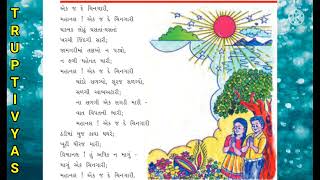 TRUPTI VYAS
એક જ દે ચિનગારી,
મહાનલ ! એક જ દે ચિનગારી
ચકમક લોઢું ઘસતાં-ઘસતાં
ખરચી જિંદગી સારી;
જામગરીમાં તણખો ન પડ્યો;
ન ફળી મહેનત મારી;
મહાનલ ! એક જ દે ચિનગારી
ચાંદો સળગ્યો, સૂરજ સળગ્યો,
સળગી આભઅટારી;
ના સળગી એક સગડી મારી -
વાત વિપતની ભારી;
મહાનલ ! એક જ દે ચિનગારી
ઠંડીમાં મુજ કાયા થથરે;
ખૂટી ધીરજ મારી;
વિશ્વાનલ ! હું અધિક ન માગું -
માગું એક ચિનગારી;
મહાનલ ! એક જ દે ચિનગારી.
TRUPTI VYAS